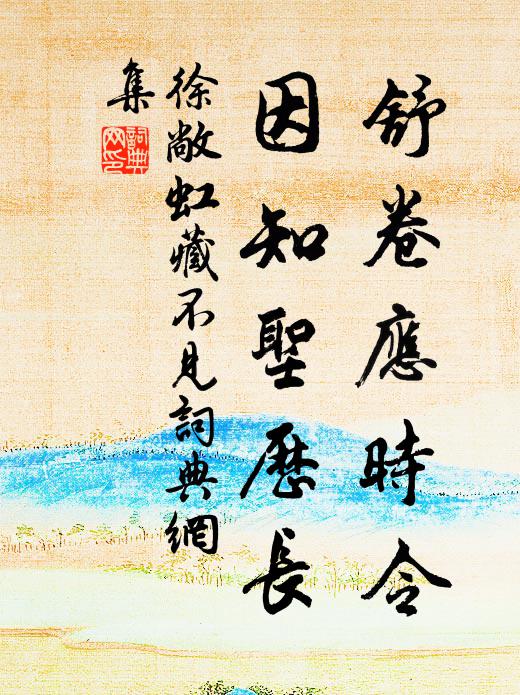 舒卷應時令
因知聖曆長
徐敞虹藏不見詞典網
集
詞典
网印